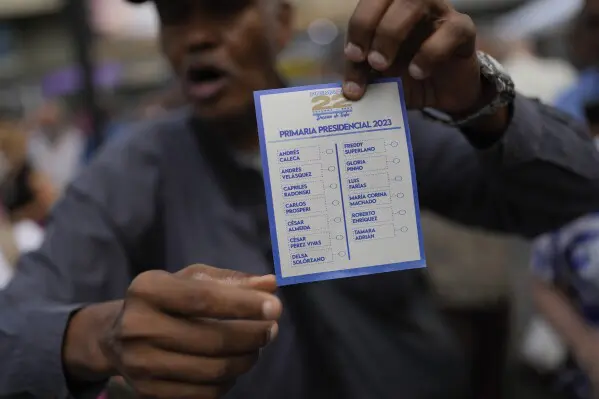 22
PRIMARIA PRESIDENCIAL 2023
ANDRÉS
CALECA
ANDRÉS
VELÁSQUEZ
CAPRILES
RADONSKI
CARLOS
PROSPERI
CÉSAR
ALMEIDA
CÉSAR
PÉREZ VIVAS
DELSA
SOLÓRZANO
FREDDY
SUPERLANO
GLORIA
PINHO
LUIS
FARÍAS
MARÍA CORINA
MACHADO
ROBERTO
ENRÍQUEZ
TAMARA
ADRIÁN